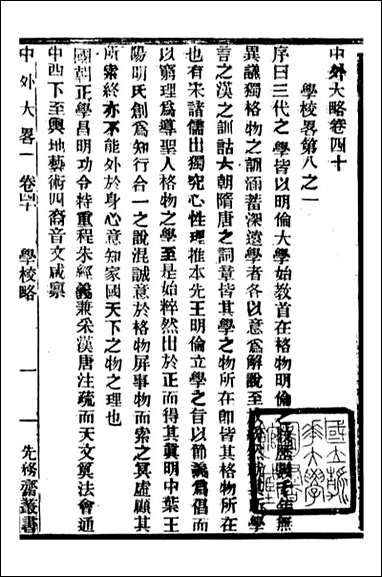 中外大略卷四十
學校畧第八之一
序曰三代之學皆以明倫大學始教首在格物明倫之數千年無
異議獨格物之訓涵蓄深遠學者各以意爲解說至學
善之漢之訓詁六朝隋唐之詞章皆其學之物所在卽皆其格物所在
也有宋諸儒出獨究心性理推本先王明倫立學之旨以節義爲倡而
以窮理爲導聖人格物之學至是始粹然出於正而得其眞明中葉王
陽明氏創爲知行合一之說混誠意於格物屏事物而索之冥虛顧其
所索終亦不能外於身心意知家國天下之物之理也
國朝正學昌明功令特重程朱經義兼采漢唐注疏而天文算法會通
中西下至輿地藝術四裔音文咸禀
中外大畧 卷四十 學校略 一 先務齋叢書
國立
華大學